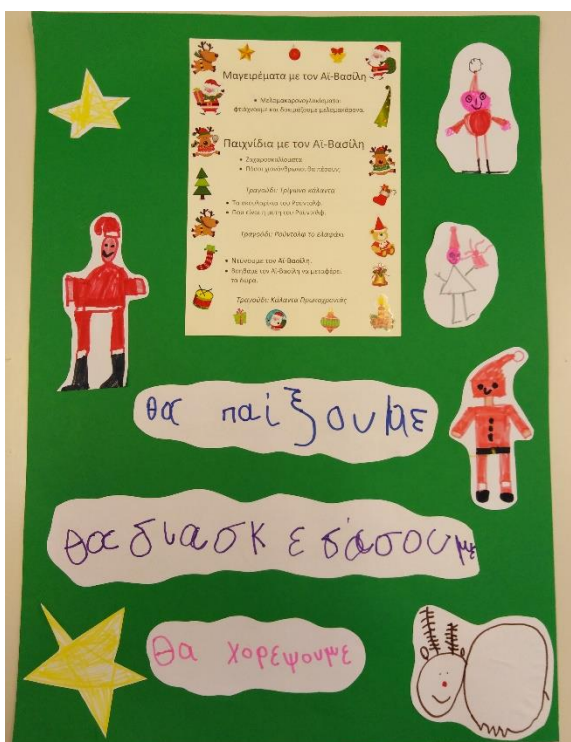 Μαγειρέματα με τον Αϊ-Βασίλη
• Μελομακαρονογλυκίσματα:
φτιάχνουμε και δοκιμάζουμε μελομακάρονα.
Παιχνίδια με τον Αϊ-Βασίλη
• Ζαχαροσκαλίσματα
• Πόσοι χιονάνθρωποι θα πέσουν;
Τραγούδι: Τρίγωνα κάλαντα
• Τα σκουλαρίκια του Ρούντολφ.
• Πού είναι η μύτη του Ρούντολφ;
Τραγούδι: Ρούντολφ το ελαφάκι
• Ντύνουμε τον Αϊ-Βασίλη.
• Βοηθάμε τον Αϊ-Βασίλη να μεταφέρει
τα δώρα.
Τραγούδι: Κάλαντα Πρωτοχρονιάς
θα παίξουμε
θα διασκεδάσουμε
θα χορέψουμε